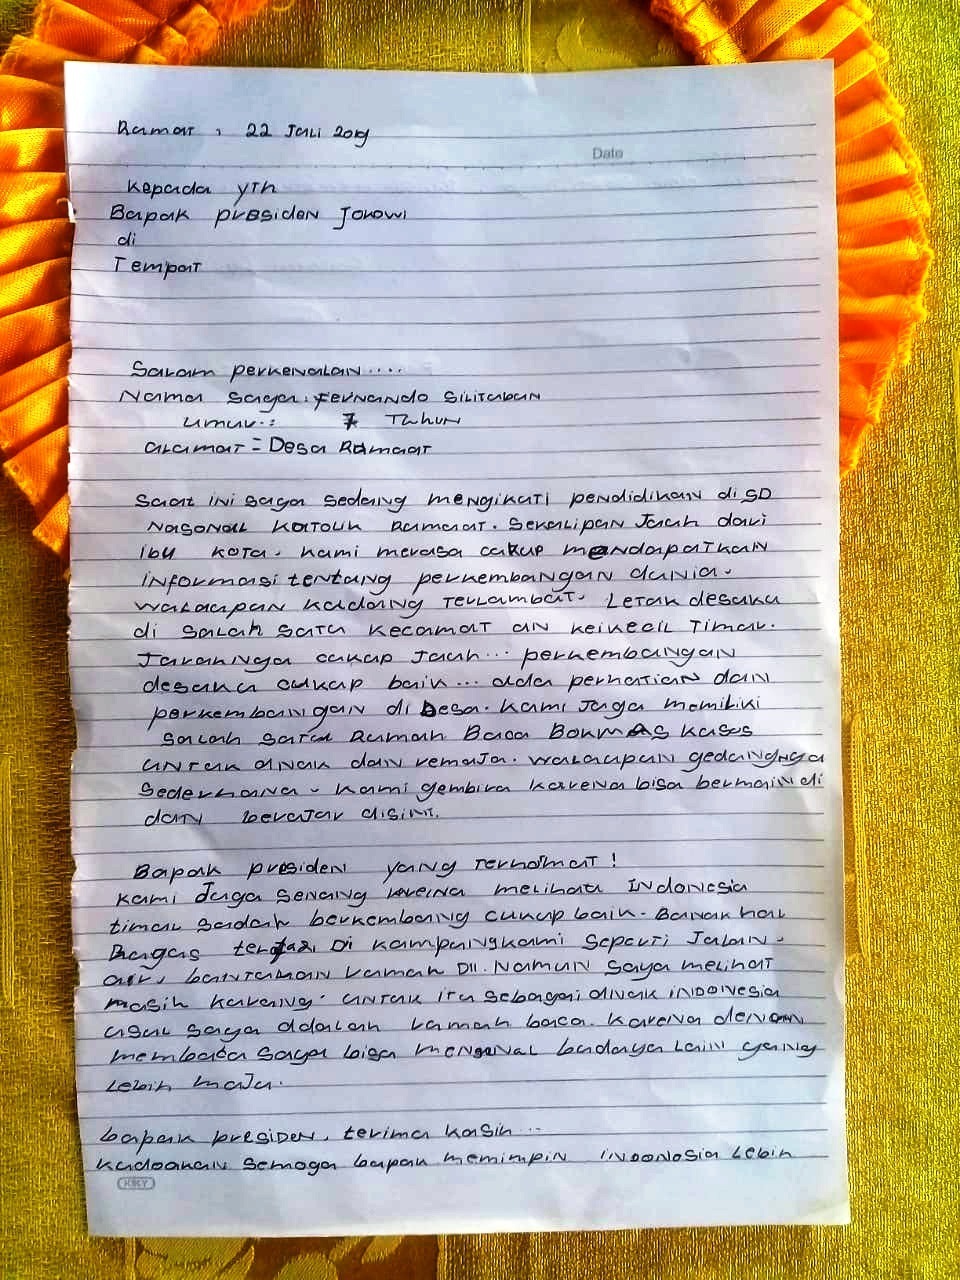 Ramat, 22 Juli 2019
Date
Kepada yth
Bapak presiden Jokowi
di
Tempat
Salam perkenalan....
Nama saya: Fernando Silitaban
umur: 7 Tahun
alamat = Desa Ramaat
Saat ini saya sedang mengikuti pendidikan di SD
Nasonall Katolik Ramaat. Sekalipan Jauh dari
ibu kota. kami merasa cukup mendapatkan
informasi tentang perkembangan dunia.
walaupun kadang terlambat. Letak desaku
di salah satu kecamat an keikecil Timur.
Jaraknya cukup Jauh... perkembangan
desaku cukup baik... ada perhatian dan
perkembangan di Desa. kami Juga memiliki
salah satu Rumah Baca kasus
untuk anak dan remaja. walaupun
sederhana. kami gembira karena bisa bermain di
dan belajar disini.
Bapak presiden yang terhormat!
kami Juga senang karena melihat Indonesia
timur sudah berkembang cukup baik. Banak hal
Bagus terjadi Di kampungkami seperti Jalan.
air, bantuan rumah Dll. Namun saya melihat
masih kurang. untuk itu sebagai anak indonesia
usul saya adalah rumah baca. karena dengan
membaca saya bisa mengenal budaya lain yang
lebih maju.
bapak presiden, terima kasih...
kudoakan semoga bapak memimpin indonosia lebih
KIKY